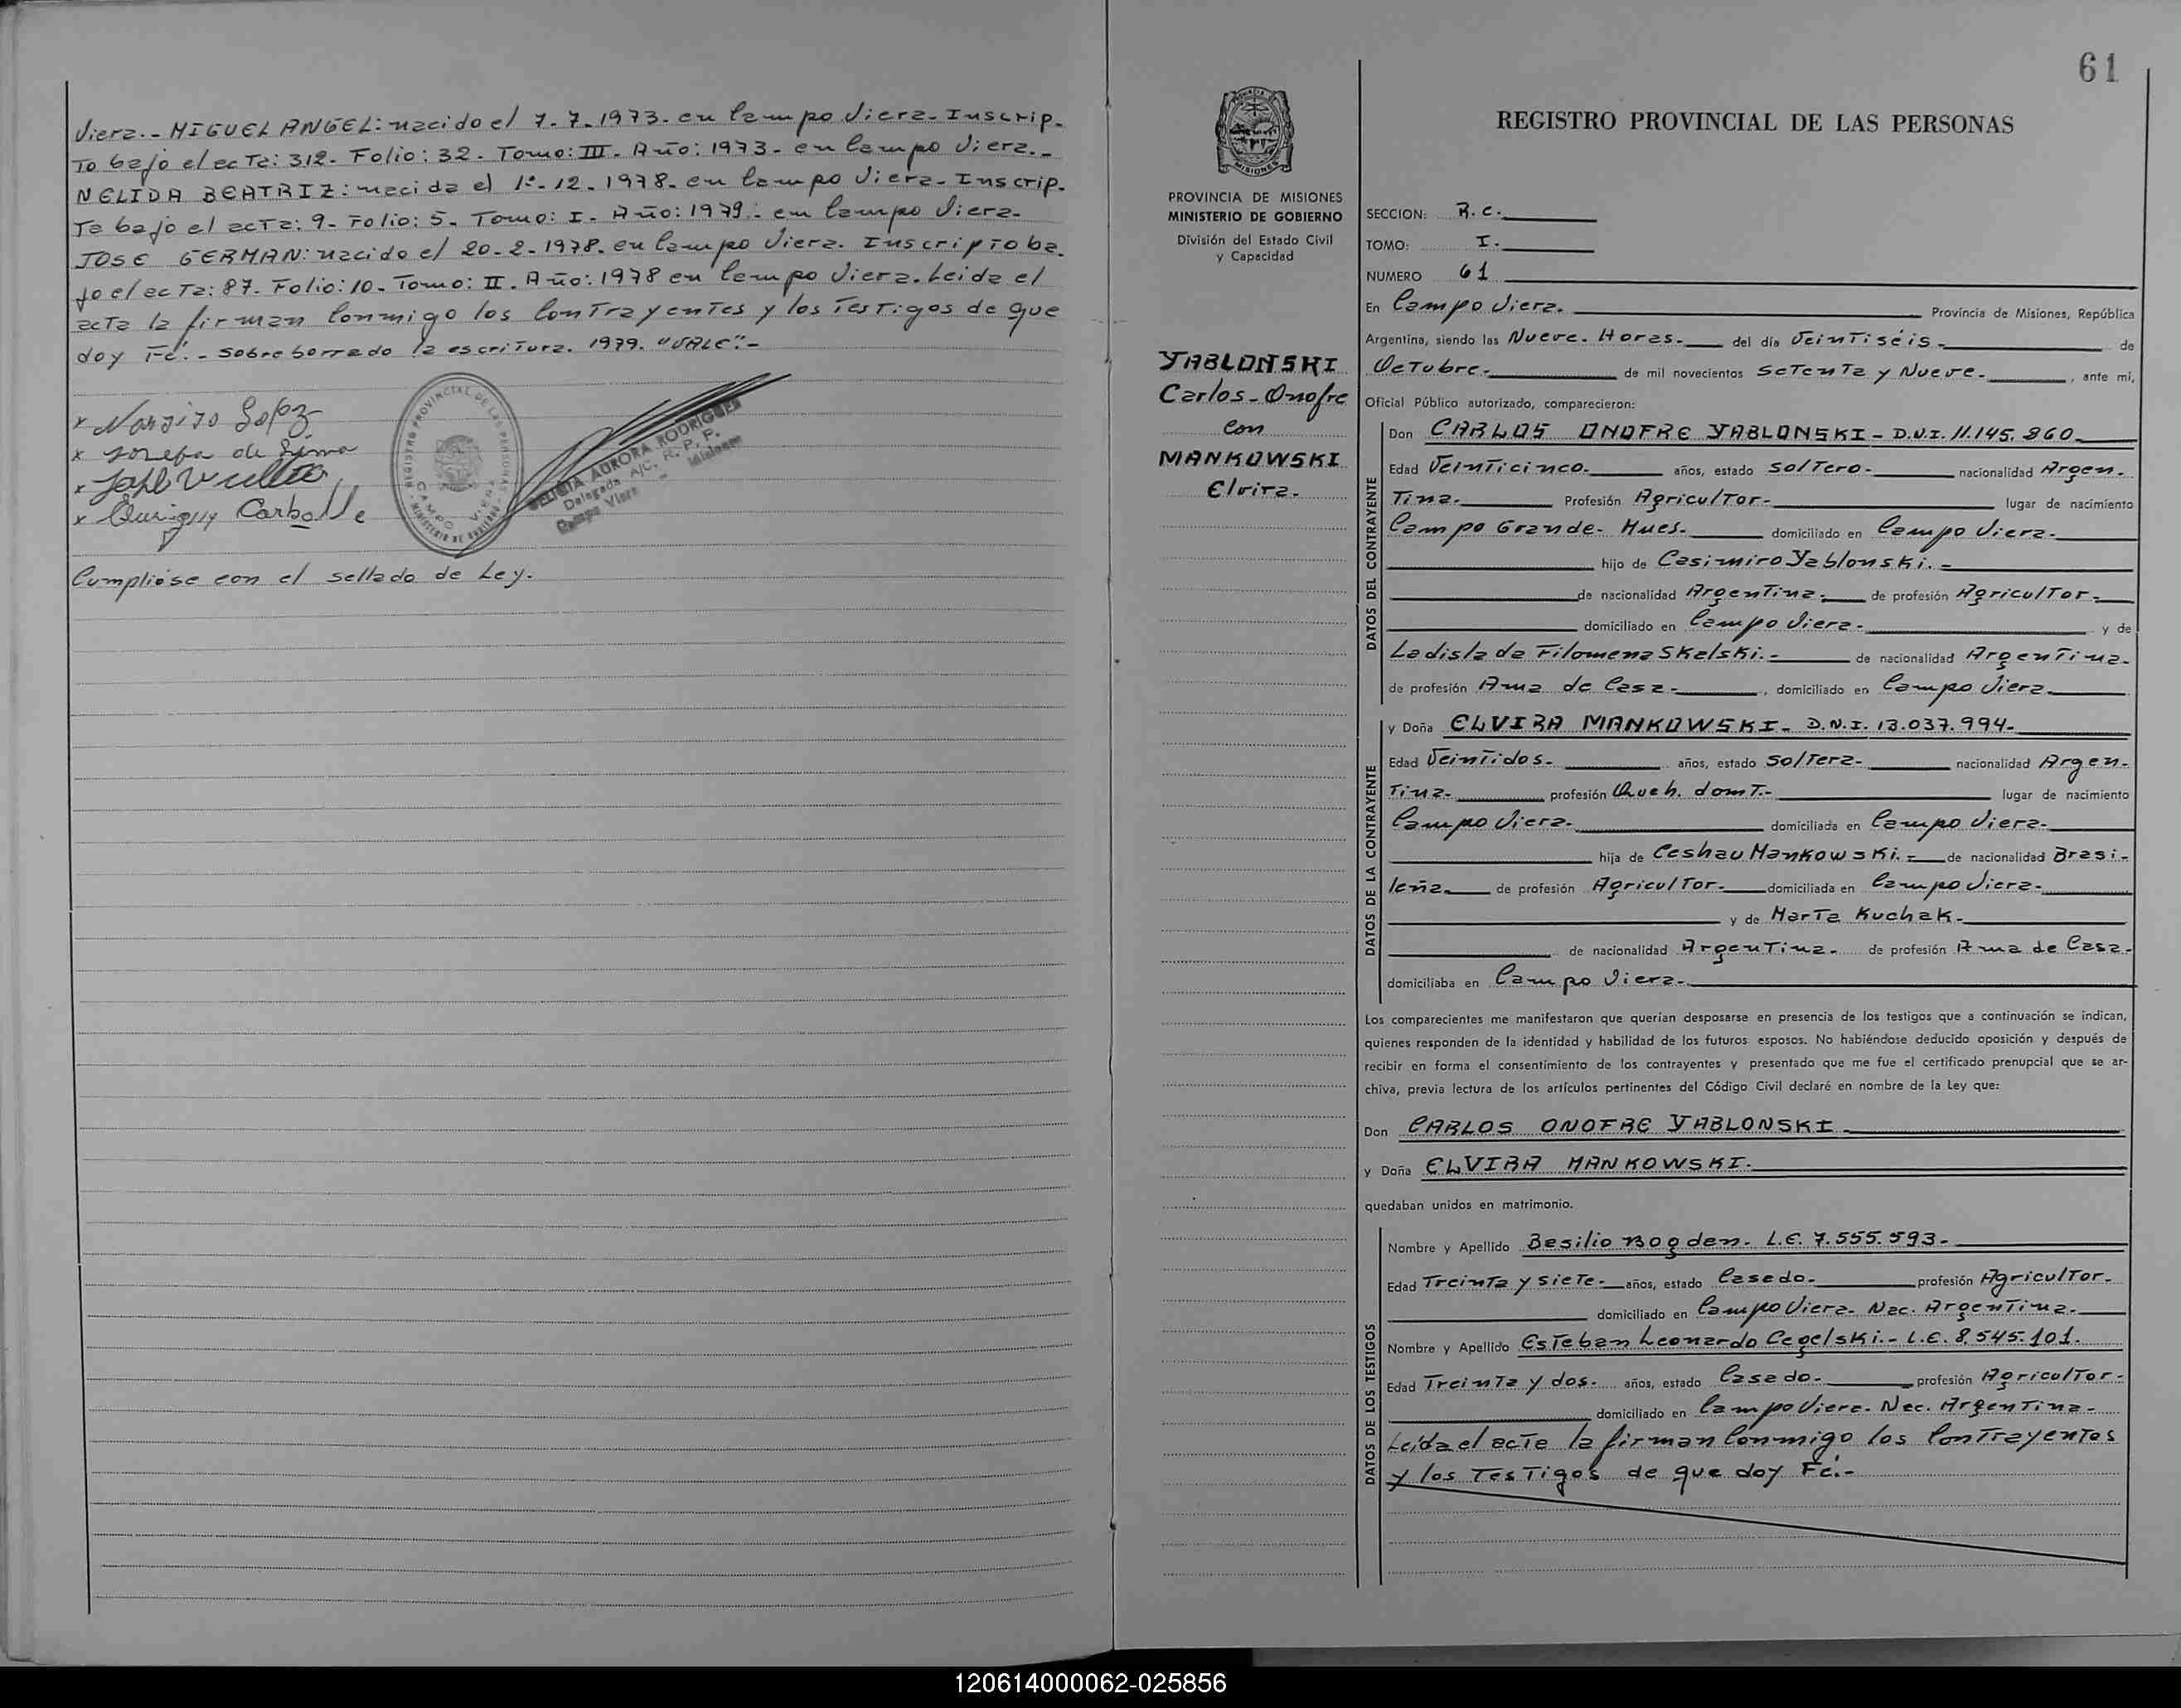 Viera.- MIGUEL ANGEL: nacido el 7-7-1973- en Campo Viera- Inscrip-
To bajo el acTa: 312- Folio: 32- Tomo: III- Año: 1973- en Campo Viera.-
NELIDA BEATRIZ: nacida el 1º-12-1978- en Campo Viera- Inscrip-
Ta bajo el acTa: 9- Folio: 5- Tomo: I- Año: 1979.- en Campo Viera-
JOSE GERMAN: nacido el 20-2-1978- en Campo Viera. InscripTo ba-
jo el acTa: 87- Folio: 10- Tomo: II- Año: 1978 en Campo Viera. Leida el
acTa la firman Conmigo los ConTrayenTes y los TesTigos de que
doy Fé.- Sobreborrado la escriTura. 1979. "VALE".-
x
x Josefa de Lima
x
x Carballe
REGISTRO PROVINCIAL DE LAS PERSONAS
MINISTERIO DE GOBIERNO
CAMPO VIERA
AURORA RODRIGUES
Delegada A/C. R. P. P.
Campo Viera - Misiones
Cumplióse con el sellado de Ley.
61
PROVINCIA DE
MISIONES
PROVINCIA DE MISIONES
MINISTERIO DE GOBIERNO
División del Estado Civil
y Capacidad
YABLONSKI
Carlos- Onofre
Con
MANKOWSKI
Elvira-
REGISTRO PROVINCIAL DE LAS PERSONAS
SECCION: R.C.
TOMO: I.
NUMERO 61
En Campo Viera. Provincia de Misiones, República
Argentina, siendo las Nueve. Horas- del día VeinTiséis- de
OcTubre- de mil novecientos SeTenTa y Nueve- , ante mi,
Oficial Público autorizado, comparecieron:
DATOS DEL CONTRAYENTE
Don CARLOS ONOFRE YABLONSKI- D.N.I. 11.145.860-
Edad VeinTicinco- años, estado SolTero- nacionalidad Argen-
Tina- Profesión AgriculTor- lugar de nacimiento
Campo Grande- Mnes- domiciliado en Campo Viera-
hijo de Casimiro Yablonski.-
de nacionalidad ArgenTina- de profesión AgriculTor-
domiciliado en Campo Viera- y de
Ladislada Filomena Skalski.- de nacionalidad ArgenTina-
de profesión Ama de Casa- , domiciliado en Campo Viera-
DATOS DE LA CONTRAYENTE
y Doña ELVIRA MANKOWSKI- D.N.I. 13.037.994-
Edad VeinTidos- años, estado SolTera- nacionalidad Argen-
Tina- profesión Queh. domT.- lugar de nacimiento
Campo Viera- domiciliada en Campo Viera-
hija de Ceshau Mankowski.- de nacionalidad Brasi-
leña- de profesión AgriculTor- domiciliada en Campo Viera-
y de MarTa Kuchak-
de nacionalidad ArgenTina- de profesión Ama de Casa-
domiciliaba en Campo Viera-
Los comparecientes me manifestaron que querían desposarse en presencia de los testigos que a continuación se indican,
quienes responden de la identidad y habilidad de los futuros esposos. No habiéndose deducido oposición y después de
recibir en forma el consentimiento de los contrayentes y presentado que me fue el certificado prenupcial que se ar-
chiva, previa lectura de los artículos pertinentes del Código Civil declaré en nombre de la Ley que:
Don CARLOS ONOFRE YABLONSKI
y Doña ELVIRA MANKOWSKI-
quedaban unidos en matrimonio.
DATOS DE LOS TESTIGOS
Nombre y Apellido Basilio Bogdan- L.E. 7.555.593-
Edad TreinTa y SieTe- años, estado Casado- profesión AgriculTor-
domiciliado en Campo Viera- Nac. ArgenTina-
Nombre y Apellido EsTeban Leonardo Cegelski.- L.E. 8.545.101.
Edad TreinTa y dos- años, estado Casado- profesión AgriculTor-
domiciliado en Campo Viera- Nac. ArgenTina-
Leída el acTa la firman Conmigo los ConTrayenTes
y los TesTigos de que doy Fé.-
120614000062-025856